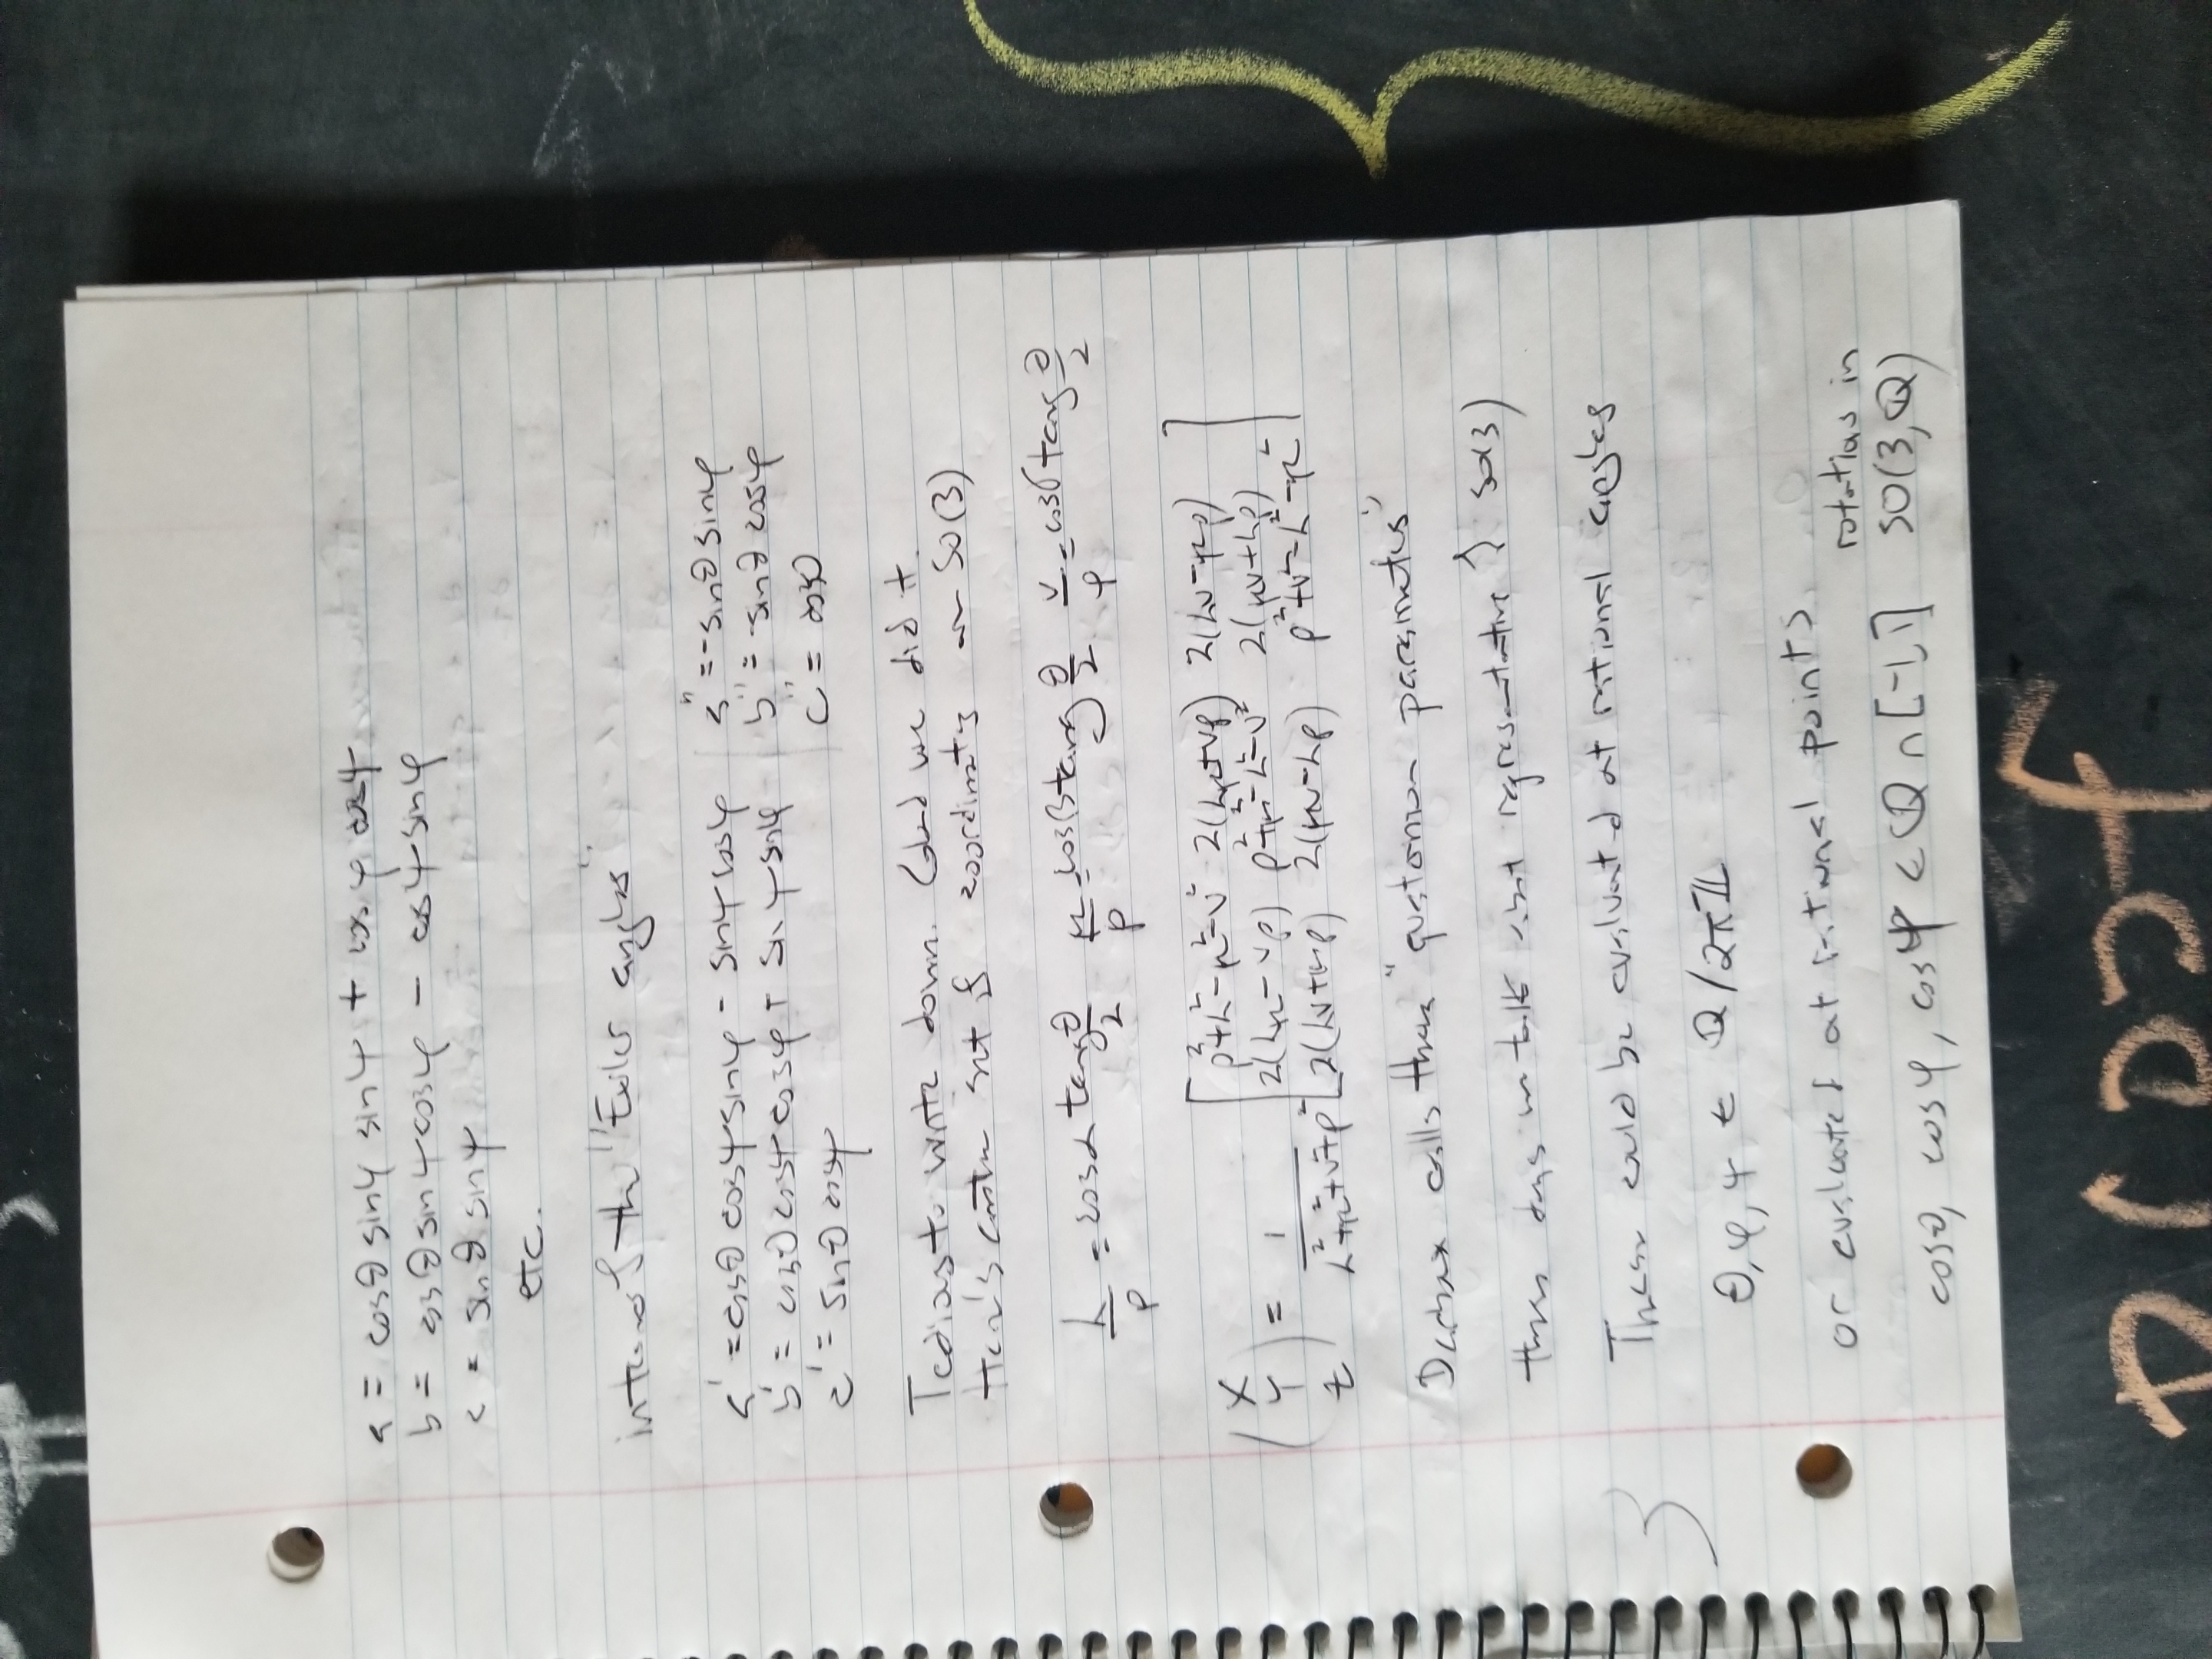 a = cosθ sinφ sinψ + cosφ cosψ
b = cosθ sinψ cosφ - cosψ sinφ
c = sinθ sinψ
etc.
in terms of the "Euler angles"
a' = cosθ cosψ sinφ - sinψ cosφ
b' = cosθ cosψ cosφ + sinψ sinφ
c' = sinθ cosψ
a'' = -sinθ sinφ
b'' = -sinθ cosφ
c'' = cosθ
Tedious to write down. Glad we did it.
Here's another set of coordinates on SO(3)
λ/ρ = cosα tang θ/2 μ/ρ = cosβ tang θ/2 ν/ρ = cosγ tang θ/2
(X Y Z) = 1/(λ²+μ²+ν²+ρ²) [ρ²+λ²-μ²-ν² 2(λμ+νρ) 2(λν-μρ)
2(λμ-νρ) ρ²+μ²-λ²-ν² 2(μν+λρ)
2(λν+μρ) 2(μν-λρ) ρ²+ν²-λ²-μ²]
Darboux calls these "quaternion parameters"
these days we talk about representative of SO(3)
These could be evaluated at rational angles
θ, φ, ψ ∈ Q/2πZ
or evaluated at rational points
cosθ, cosφ, cosψ ∈ Q ∩ [-1,1]
rotations in
SO(3,Q)
Proof